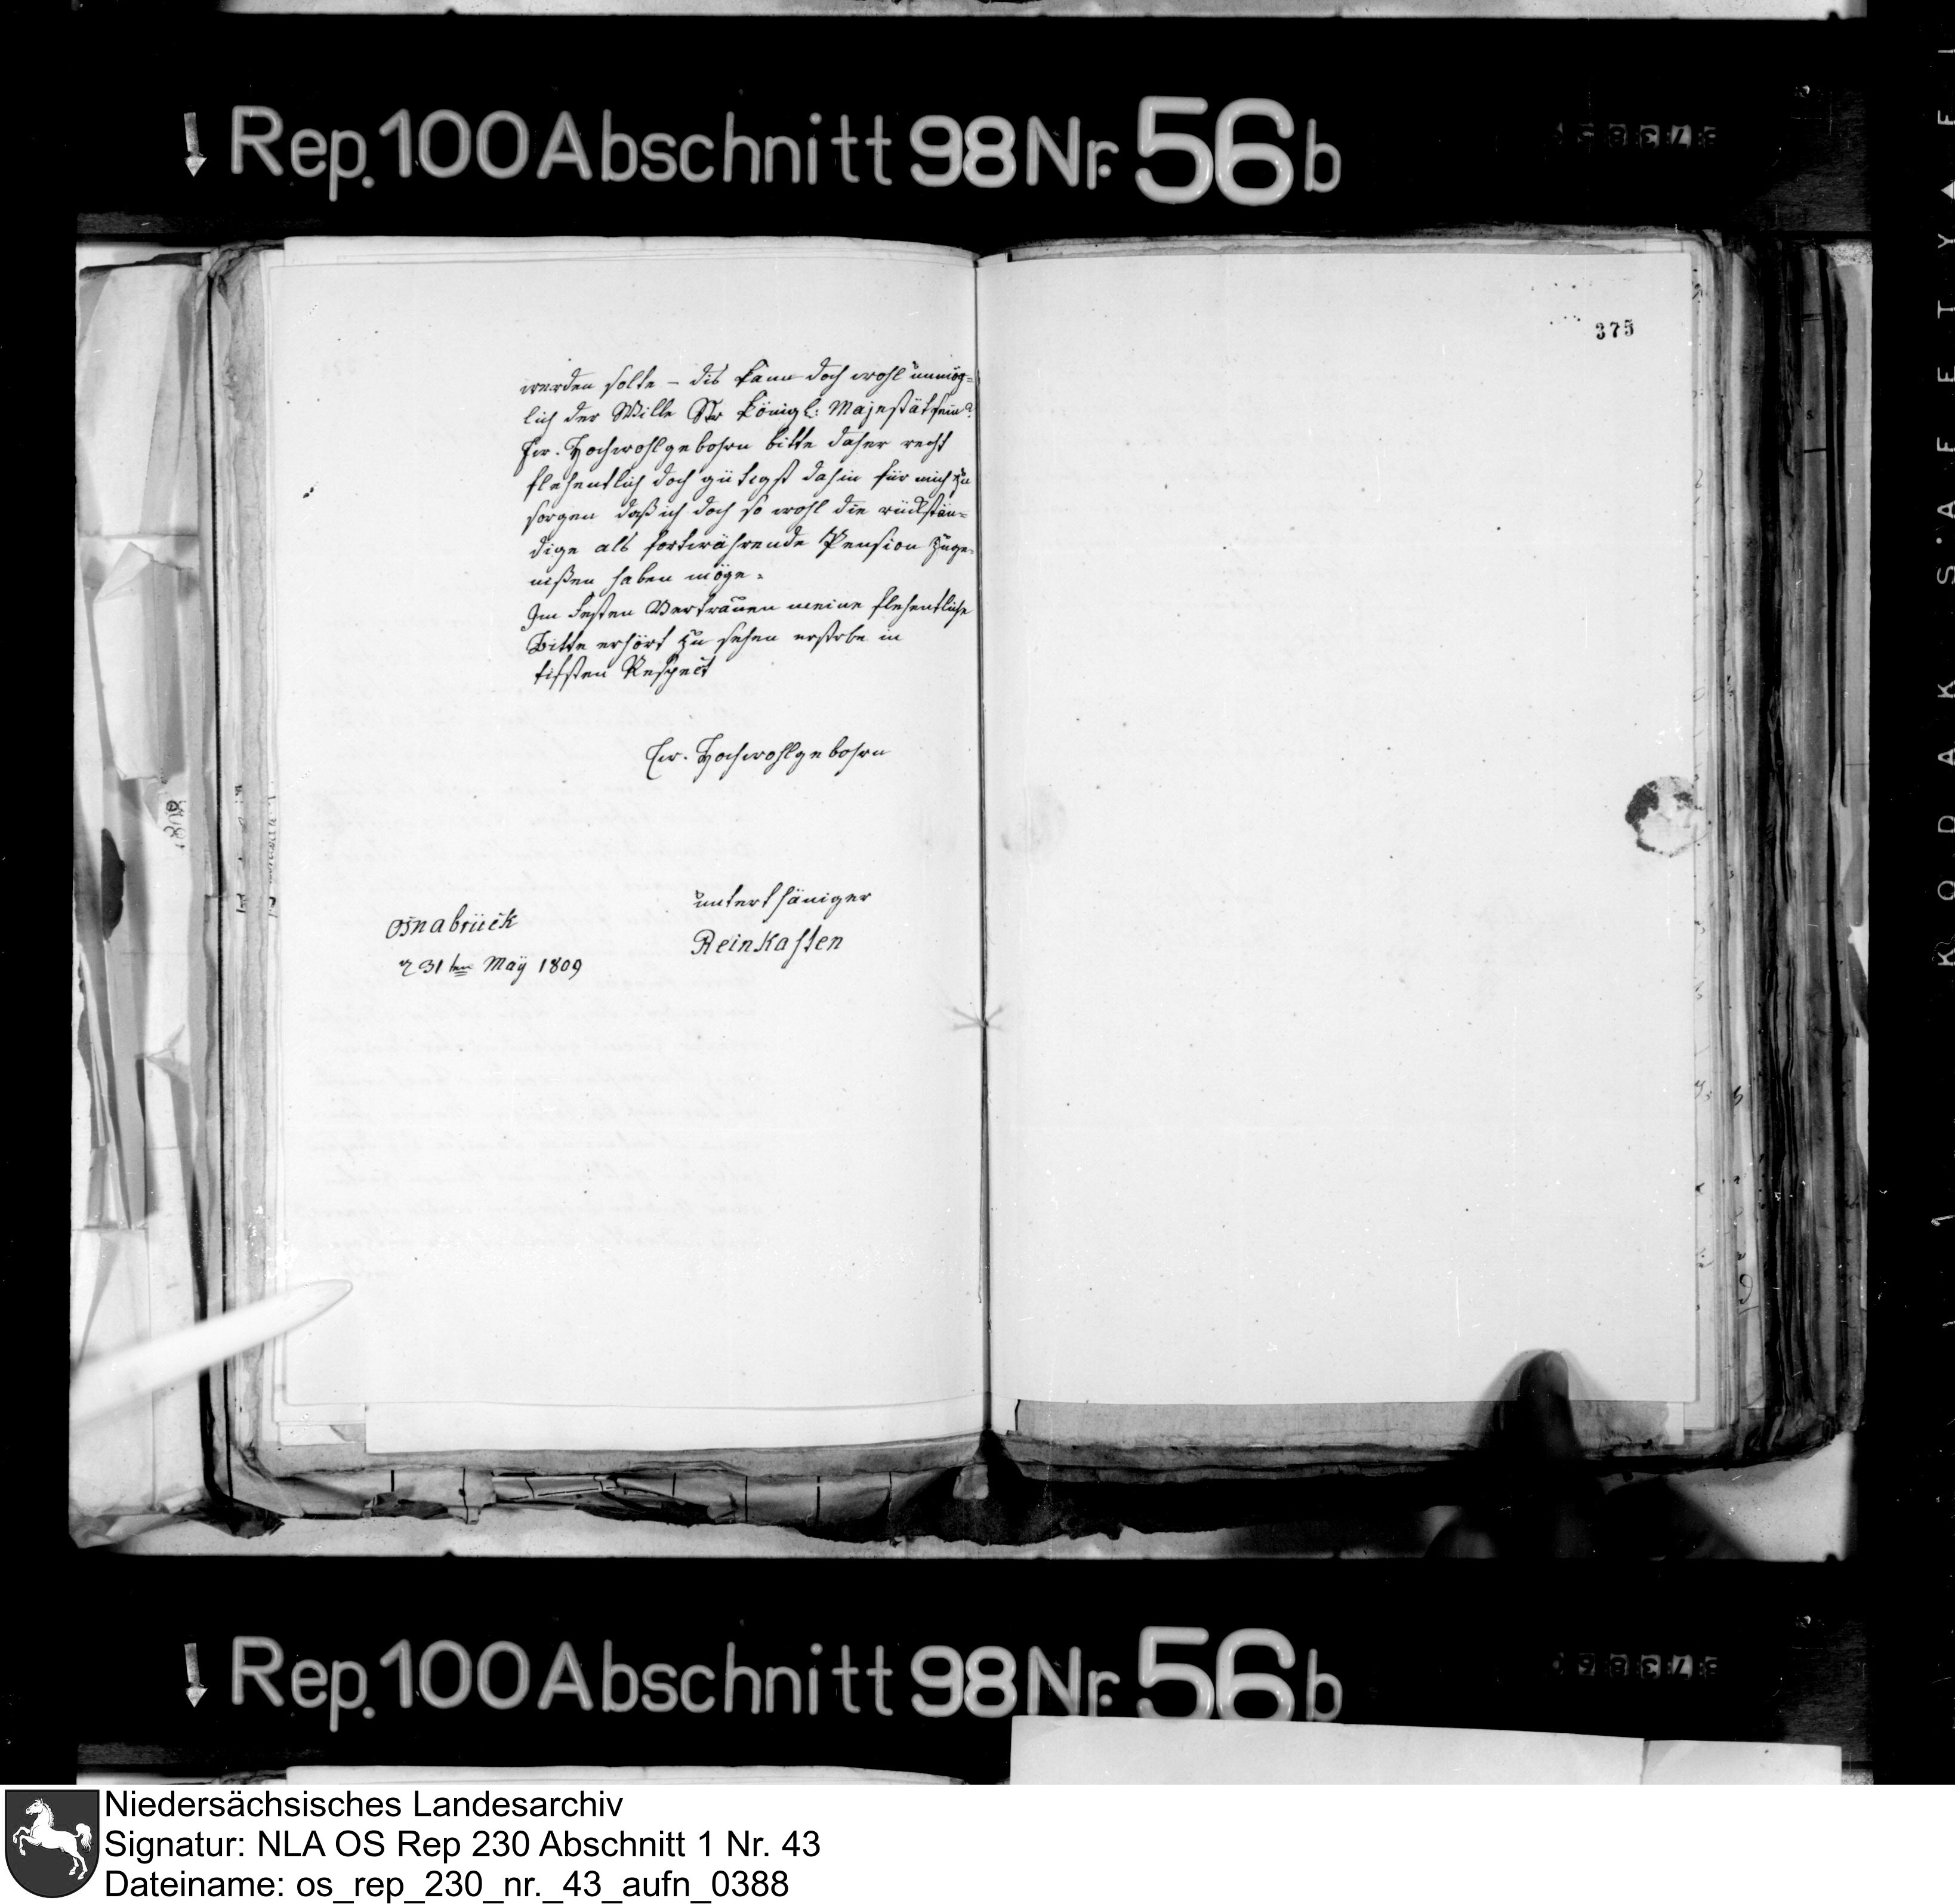 Rep. 100 Abschnitt 98 Nr. 56 b
375
werden solte – dis kann doch wohl unmög-
lich der Wille Sr Königl: Majestät sein?
Ew. Hochwohlgebohrn bitte daher recht
flehentlich doch gütigst dahin für mich zu
sorgen daß ich doch so wohl die rückstän-
dige als fortwährende Pension zuge-
nißen haben möge.
Im festen Vertrauen meine flehentliche
Bitte erhört zu sehen ersterbe in
tifsten Respect
Ew. Hochwohlgebohrn
unterthäniger
Reinkasten
Osnabrück
d 31ten Maÿ 1809
1808
Rep. 100 Abschnitt 98 Nr. 56 b
KODAK SAFETY
Niedersächsisches Landesarchiv
Signatur: NLA OS Rep 230 Abschnitt 1 Nr. 43
Dateiname: os_rep_230_nr._43_aufn_0388